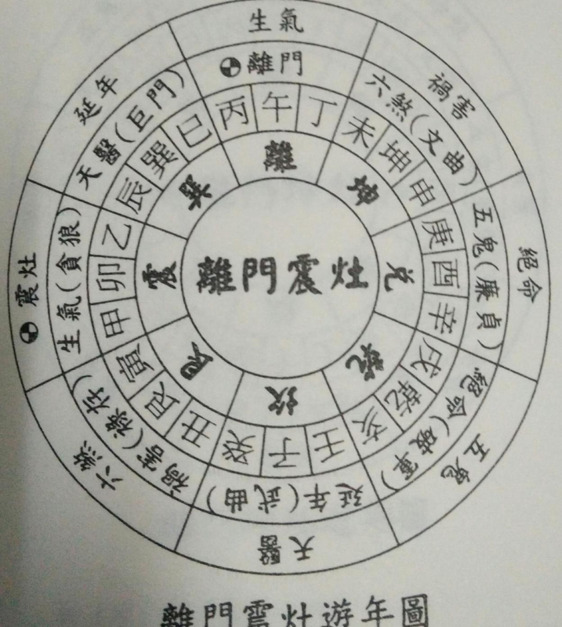 離門震灶
離
坤
兌
乾
坎
艮
震
巽
丙
午
丁
未
坤
申
庚
酉
辛
戌
乾
亥
壬
子
癸
丑
艮
寅
甲
卯
乙
辰
巽
巳
離門
六煞(文曲)
五鬼(廉貞)
絕命(破軍)
延年(武曲)
禍害(祿存)
生氣(貪狼)
天醫(巨門)
生氣
禍害
絕命
五鬼
天醫
六煞
震灶
延年
離門震灶遊年圖